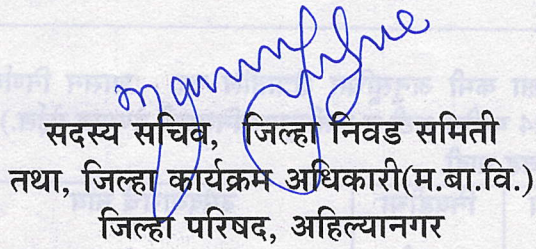 सदस्य सचिव, जिल्हा निवड समिती
तथा, जिल्हा कार्यक्रम अधिकारी(म.बा.वि.)
जिल्हा परिषद, अहिल्यानगर